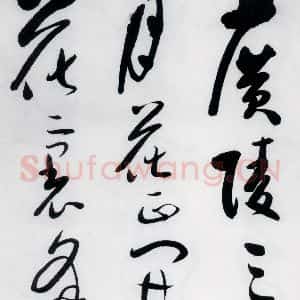 廣陵三
月花正開
花裏逢
Shufawang.CN